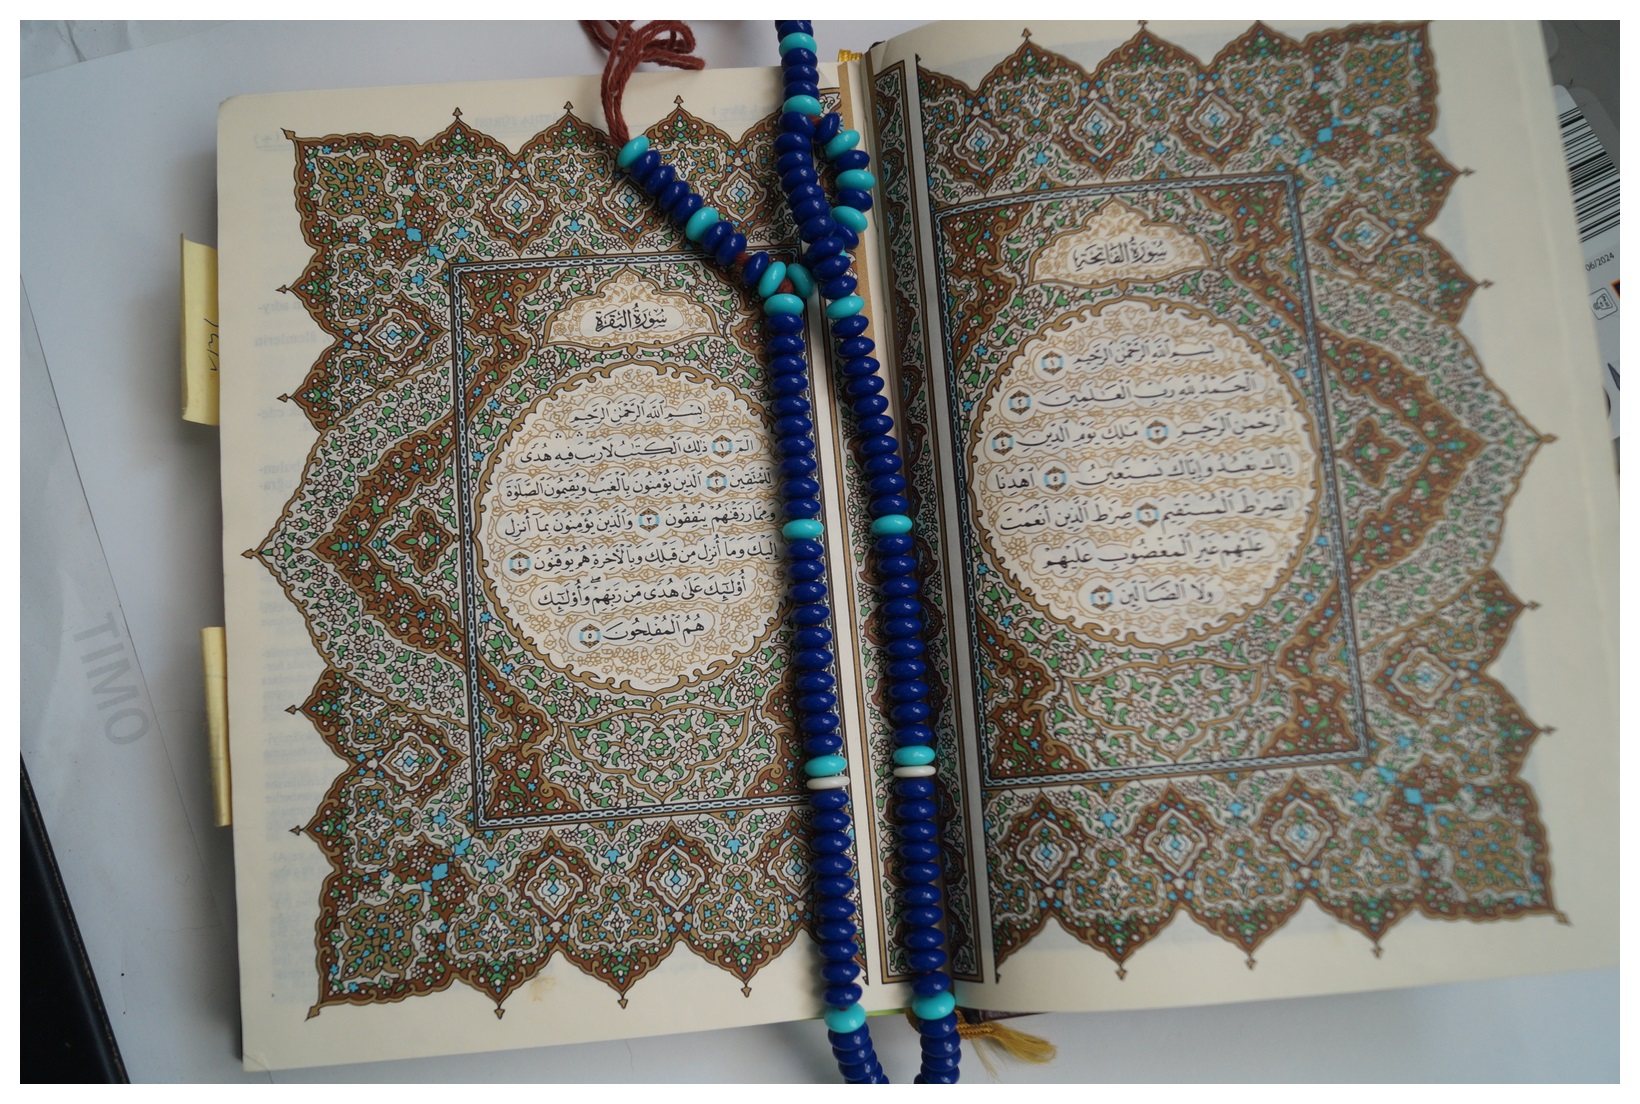 سُورَةُ الفَاتِحَةِ
بِسْمِ ٱللَّهِ ٱلرَّحْمَٰنِ ٱلرَّحِيمِ ١
ٱلْحَمْدُ لِلَّهِ رَبِّ ٱلْعَٰلَمِينَ ٢
ٱلرَّحْمَٰنِ ٱلرَّحِيمِ ٣ مَٰلِكِ يَوْمِ ٱلدِّينِ ٤
إِيَّاكَ نَعْبُدُ وَإِيَّاكَ نَسْتَعِينُ ٥ ٱهْدِنَا
ٱلصِّرَٰطَ ٱلْمُسْتَقِيمَ ٦ صِرَٰطَ ٱلَّذِينَ أَنْعَمْتَ
عَلَيْهِمْ غَيْرِ ٱلْمَغْضُوبِ عَلَيْهِمْ
وَلَا ٱلضَّآلِّينَ ٧
سُورَةُ البَقَرَةِ
بِسْمِ ٱللَّهِ ٱلرَّحْمَٰنِ ٱلرَّحِيمِ
الٓمٓ ١ ذَٰلِكَ ٱلْكِتَٰبُ لَا رَيْبَ ۛ فِيهِ ۛ هُدًى
لِّلْمُتَّقِينَ ٢ ٱلَّذِينَ يُؤْمِنُونَ بِٱلْغَيْبِ وَيُقِيمُونَ ٱلصَّلَوٰةَ
وَمِمَّا رَزَقْنَٰهُمْ يُنفِقُونَ ٣ وَٱلَّذِينَ يُؤْمِنُونَ بِمَآ أُنزِلَ
إِلَيْكَ وَمَآ أُنزِلَ مِن قَبْلِكَ وَبِٱلْءَاخِرَةِ هُمْ يُوقِنُونَ ٤
أُو۟لَٰٓئِكَ عَلَىٰ هُدًى مِّن رَّبِّهِمْ ۖ وَأُو۟لَٰٓئِكَ
هُمُ ٱلْمُفْلِحُونَ ٥
TIMO
06/2024